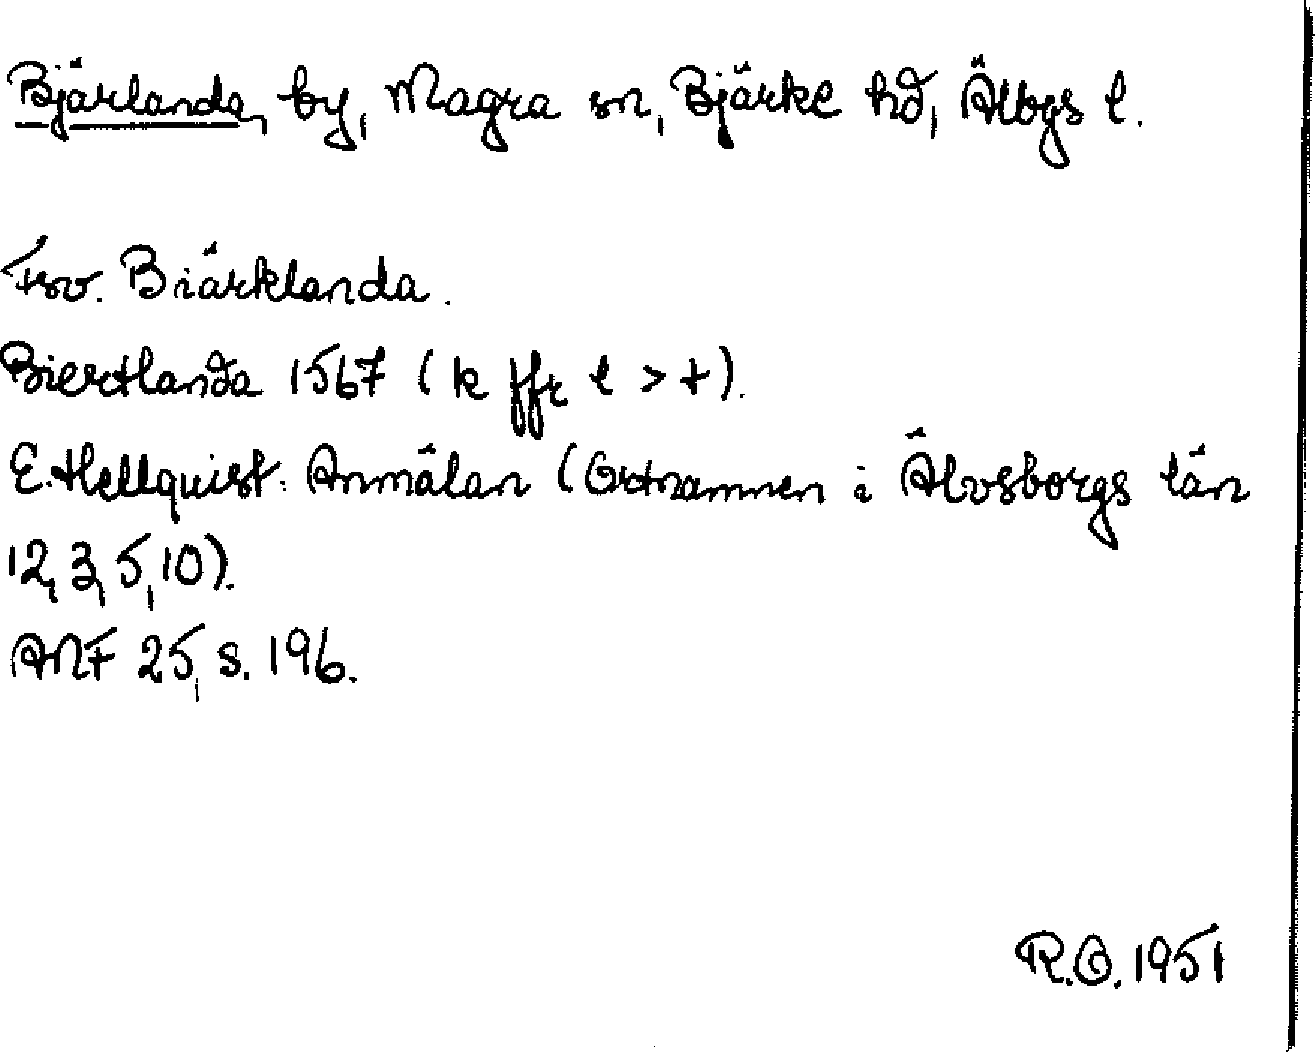 Bjärlanda, by, Magra sn, Bjärke hd, Älvbgs l.
Fsv. Biärklanda.
Biertlanda 1567 (k ffr l > t).
E. Hellquist: Anmälan (Ortnamnen i Älvsborgs län
12, 3, 5, 10).
ANF 25, s. 196.
R.O. 1951